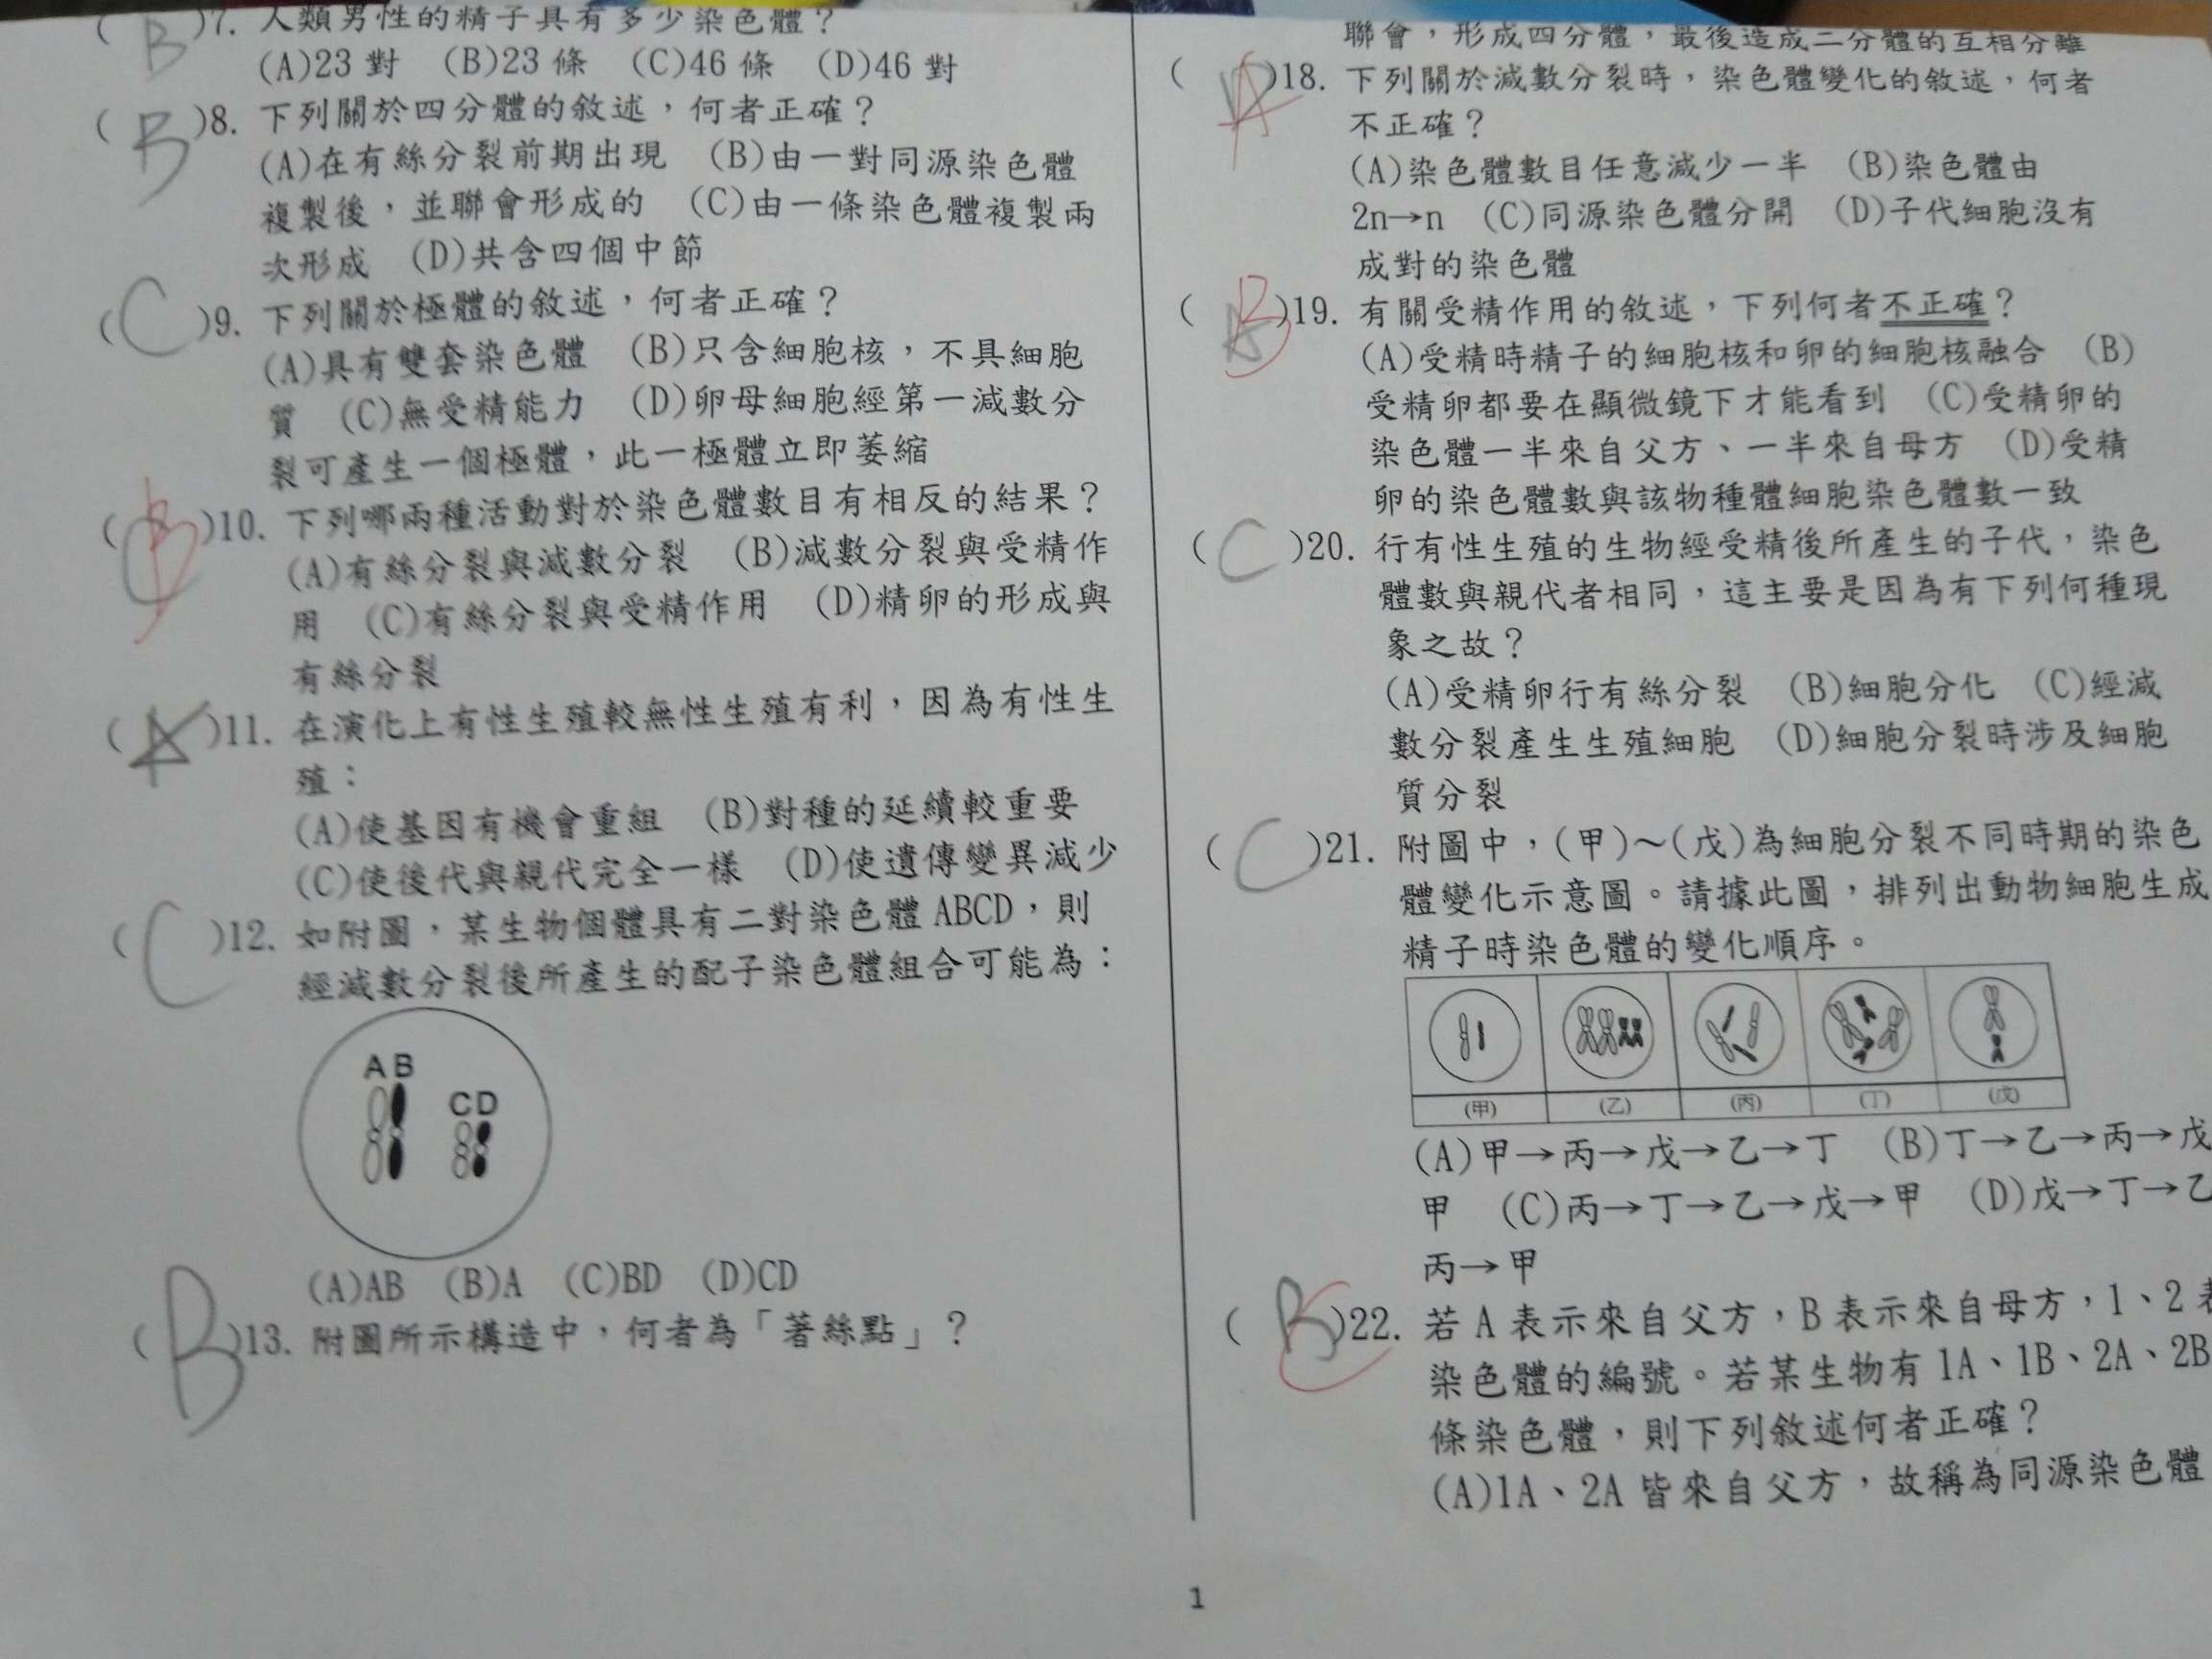 ( B )7. 人類男性的精子具有多少染色體？
(A)23 對 (B)23 條 (C)46 條 (D)46 對
( B )8. 下列關於四分體的敘述，何者正確？
(A)在有絲分裂前期出現 (B)由一對同源染色體
複製後，並聯會形成的 (C)由一條染色體複製兩
次形成 (D)共含四個中節
( C )9. 下列關於極體的敘述，何者正確？
(A)具有雙套染色體 (B)只含細胞核，不具細胞
質 (C)無受精能力 (D)卵母細胞經第一減數分
裂可產生一個極體，此一極體立即萎縮
( B )10. 下列哪兩種活動對於染色體數目有相反的結果？
(A)有絲分裂與減數分裂 (B)減數分裂與受精作
用 (C)有絲分裂與受精作用 (D)精卵的形成與
有絲分裂
( A )11. 在演化上有性生殖較無性生殖有利，因為有性生
殖：
(A)使基因有機會重組 (B)對種的延續較重要
(C)使後代與親代完全一樣 (D)使遺傳變異減少
( C )12. 如附圖，某生物個體具有二對染色體 ABCD，則
經減數分裂後所產生的配子染色體組合可能為：
A B
C D
(A)AB (B)A (C)BD (D)CD
( B )13. 附圖所示構造中，何者為「著絲點」？
聯會，形成四分體，最後造成二分體的互相分離
( A )18. 下列關於減數分裂時，染色體變化的敘述，何者
不正確？
(A)染色體數目任意減少一半 (B)染色體由
2n→n (C)同源染色體分開 (D)子代細胞沒有
成對的染色體
( B )19. 有關受精作用的敘述，下列何者不正確？
(A)受精時精子的細胞核和卵的細胞核融合 (B)
受精卵都要在顯微鏡下才能看到 (C)受精卵的
染色體一半來自父方、一半來自母方 (D)受精
卵的染色體數與該物種體細胞染色體數一致
( C )20. 行有性生殖的生物經受精後所產生的子代，染色
體數與親代者相同，這主要是因為有下列何種現
象之故？
(A)受精卵行有絲分裂 (B)細胞分化 (C)經減
數分裂產生生殖細胞 (D)細胞分裂時涉及細胞
質分裂
( C )21. 附圖中，(甲)～(戊)為細胞分裂不同時期的染色
體變化示意圖。請據此圖，排列出動物細胞生成
精子時染色體的變化順序。
(甲) (乙) (丙) (丁) (戊)
(A)甲→丙→戊→乙→丁 (B)丁→乙→丙→戊
甲 (C)丙→丁→乙→戊→甲 (D)戊→丁→乙
丙→甲
( B )22. 若 A 表示來自父方，B 表示來自母方，1、2
染色體的編號。若某生物有 1A、1B、2A、2B
條染色體，則下列敘述何者正確？
(A)1A、2A 皆來自父方，故稱為同源染色體
1